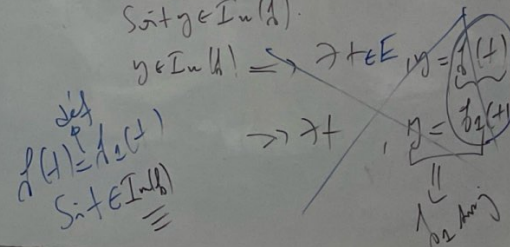 Soit y ∈ Im(f).
y ∈ Im(f) => ∃ t ∈ E, y = f(t)
=> ∃ t, y = f_1(t)
déf
f(t) = f_1(t)
Soit ∈ Im(f)
f_1 inj